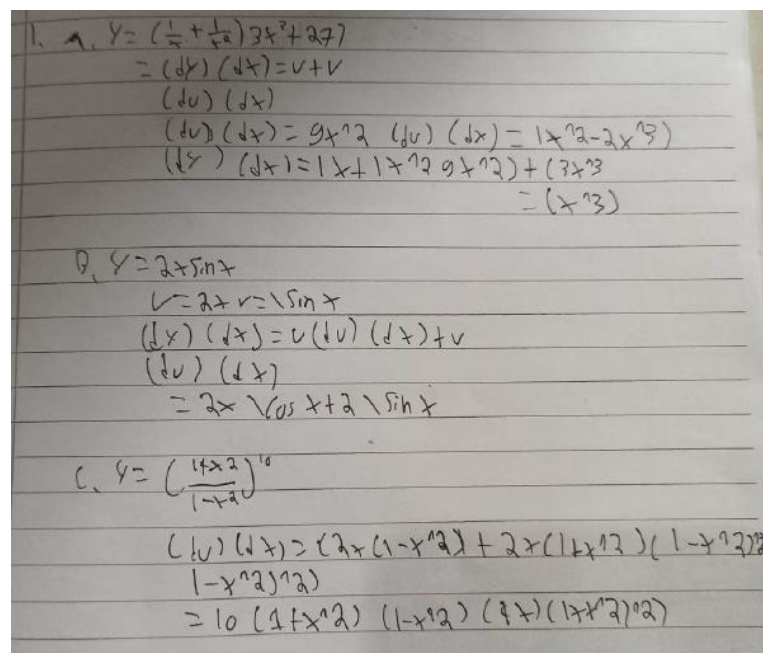 1. a. y = (1/x + 1/x²) 3x³ + 27)
= (dy) (dx) = v + v
(du) (dx)
(du) (dx) = 9x^2 (du) (dx) = 1x^2 - 2x^3)
(dy) (dx) = 1x + 1x^2 9x^2) + (3x^3
= (x^3)
B. y = 2x sin x
v = 2x v = \sin x
(dy) (dx) = u (du) (dx) + v
(du) (dx)
= 2x \cos x + 2 \sin x
C. y = (1+x2 / 1-x2)^10
(du) (dx) = (2x (1-x^2)) + 2x (1+x^2) (1-x^2)^2
1-x^2)^2)
= 10 (1+x^2) (1-x^2) (4x) (1+x^2)^2)